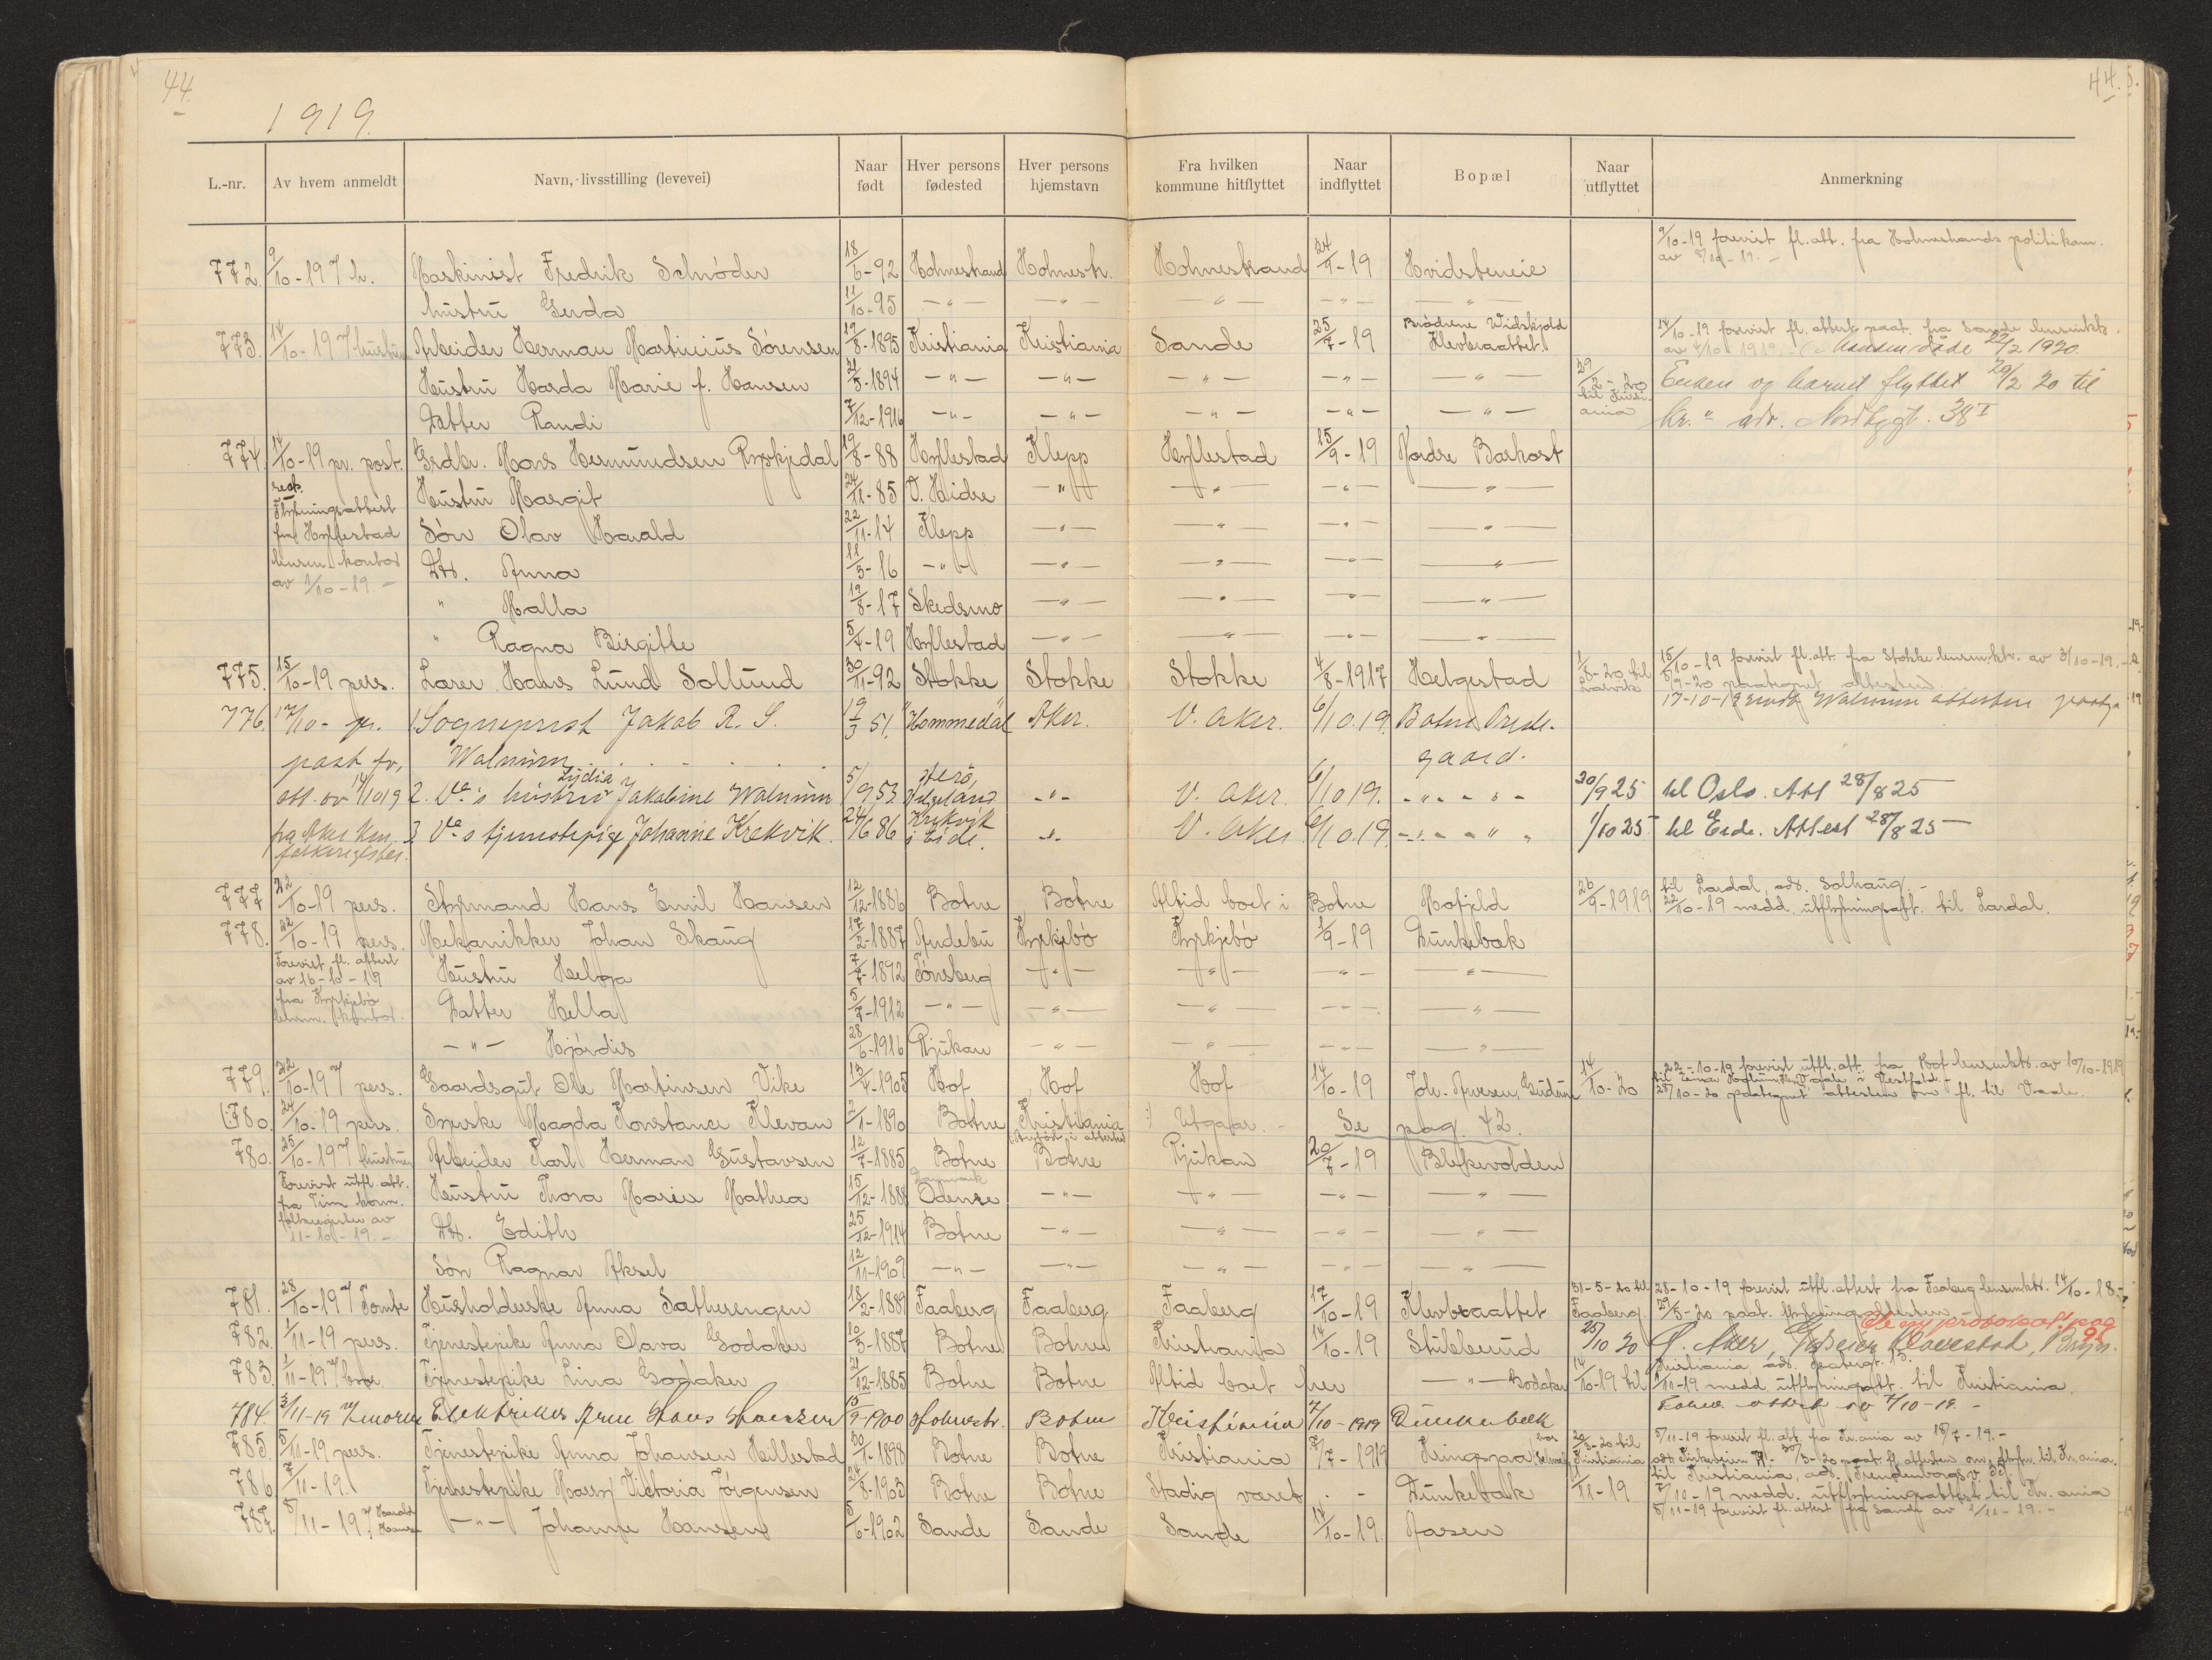 44.
44.
1919.
L.-nr. Av hvem anmeldt Navn, livsstilling (levevei) Naar født Hver persons fødested Hver persons hjemstavn Fra hvilken kommune hitflyttet Naar indflyttet Bopæl Naar utflyttet Anmerkning
9/10-19 forevist fl. att. fra Holmestrands politikam.
772. 9/10-19 Maskinist Fredrik Schrøder 18/6-92 Holmestrand Holmestr. Holmestrand 24/9-19 Hvidsteneie
hustru Gerda 11/10-95 -"- -"- -"- -"- -"-
773. 14/10-19 hustru Arbeider Herman Martinius Sørensen 19/8-1895 Kristiania Kristiania Sande 25/7-19 Brødrene Widskjold Klevbraattet. 14/10-19 forevist fl. attest paat. fra Sande lensmkt.
Manden døde 22/2 1920.
Hustru Harda Marie f. Hansen 21/5-1894 -"- -"- -"- -"- -"- 29/2-20 til Kristiania Enken og barnet flyttet 29/2 20 til
Datter Randi 7/12-1916 -"- -"- -"- -"- -"- Kr.a adr. Nordbygt. 38 I
774. 14/10-19 pr. post. Grdbr. Hans Hermundsen Rypkjedal 19/8-88 Hyllestad Klepp Hyllestad 15/9-19 Nordre Barkost
Hustru Margit 24/11-85 V. Slidre -"- -"- -"- -"-
Flytningsattest
fra Hyllestad Søn Olav Harald 22/11-14 Klepp -"- -"- -"- -"-
lensm. kontor Dtr. Anna 11/3-16 -"- -"- -"- -"- -"-
av 1/10-19.-
" Malla 19/8-17 Skedsmo -"- -"- -"- -"-
" Ragna Birgitte 5/7-19 Hyllestad -"- -"- -"- -"-
775. 15/10-19 pers. Lærer Hans Lund Sollund 30/11-92 Stokke Stokke Stokke 4/8-1917 Helgestad 1/8-20 til Larvik 15/10-19 forevist fl. att. fra Stokke lensm.ktr. av 3/10-19.-
paategnet attesten
776. 17/10- pr. 1. Sogneprest Jakob R. S. 19/3 51. Hommedal Aker. V. Aker. 6/10.19. Botne Prestegaard.
17-10-19 sendt Walnum attesten
post fr, Walnum
att. av 14/10 19 2. Do's hustru Lydia Jakobine Walnum 5/9 53. Herö, Helgeland -"- V. Aker. 6/10 19. -"- 20/9 25 til Oslo. Att 28/8 25
fra Aker Kom. folkeregister. 3. Do's tjenestepige Johanne Krekvik. 24/6 86 Krekvik i Eide. -"- V. Aker 6/10.19. -"- 1/10 25 til Eide. Attest 28/8 25
777. 22/10-19 pers. Styrmand Hans Emil Hansen 12/12-1886 Botne Botne Altid boet i Botne Mofjeld 26/9-1919 til Lardal, adr. Solhaug -
22/10-19 medd. utflytningsatt. til Lardal.
778. 22/10-19 pers. Mekanikker Johan Skaug 17/2-1887 Andebu Kyrkjebø Kyrkjebø 1/9-19 Dunkebæk
Forevist fl. attest
av 16-10-19 Hustru Helga 7/7-1892 Tønsberg -"- -"- -"- -"-
fra Kyrkjebø Datter Hella 5/7-1912 -"- -"- -"- -"- -"-
lensm. kontor.
-"- Hjørdis 28/6-1916 Rjukan -"- -"- -"- -"-
779. 22/10-19 pers. Gaardsgut Ole Martinsen Vike 13/4-1905 Hof Hof Hof 14/10-19 Joh. Arvesen, Gudum 14/10-20 22-10-19 forevist utfl. att. fra Hof lensmkt. av 10/10-1919
25/10-20 paategnet attesten om fl. til Vaale.
(780. 24/10-19 pers. Syerske Magda Konstance Klevan 2/1-1890 Botne Kristiania :) Utgaar. - Se pag. 42.
780. 25/10-19 hustru Arbeider Karl Herman Gustavsen 12/7-1885 Botne Botne Rjukan 20/7-19 Blekevolden
Forevist utfl. att. Hustru Thora Marie Mathea 15/12-1888 Danmark Odense -"- -"- -"- -"-
fra Tinn kom.
folkeregister av Dtr. Edith 25/12-1914 Botne -"- -"- -"- -"-
11-10-19.-
Søn Ragnar Aksel 12/11-1909 -"- -"- -"- -"- -"-
781. 28/10-19 Tombe Husholderske Anna Sætherengen 18/2-1889 Faaberg Faaberg Faaberg 17/10-19 Klevbraattet 31-5-20 til Faaberg. 28-10-19 forevist utfl. attest fra Faaberg lensmkt. 14/10-18.-
29/5-20 paat. flytningsattesten
Se ny protokol pag 92.
782. 1/11-19 pers. Tjenestepike Anna Olava Godaker 10/3-1887 Botne Botne Kristiania 14/10-19 Stublund 25/10 20
783. 1/11-19 bror Tjenestepike Lina Godaker 21/12-1885 Botne Botne Altid boet her -"- Godaker 14/10-19 til Kristiania, adr.
1/11-19 medd. utflytningsatt. til Kristiania.
784. 3/11-19 moren Elektriker Arne Hans Hansen 15/9-1900 Holmestr. Botne Kristiania 7/10-1919 Dunkebæk Forev. attest av 7/10-19.-
785. 5/11-19 pers. Tjenestepike Anna Johansen Hillestad 30/1-1898 Botne Botne Kristiania 7/7-1919 Kringspa 29/3-20 til Kristiania 5/11-19 forevist fl. att. fra Kr.ania av 18/7-19.-
786. 7/11-19. Tjenestepike Mary Victoria Jørgensen 24/8-1903 Botne Botne Stadig været - - Dunkebæk 1/11-19 til Kristiania, adr.
7/10-19 medd. utflytningsattest til Kr.ania
787. 8/11-19 Harald Hansen -"- Johanne Hansen 5/6-1902 Sande Sande Sande 14/10-19. Aasen 8/11-19 forevist fl. attest fra Sande av 1/11-19.-